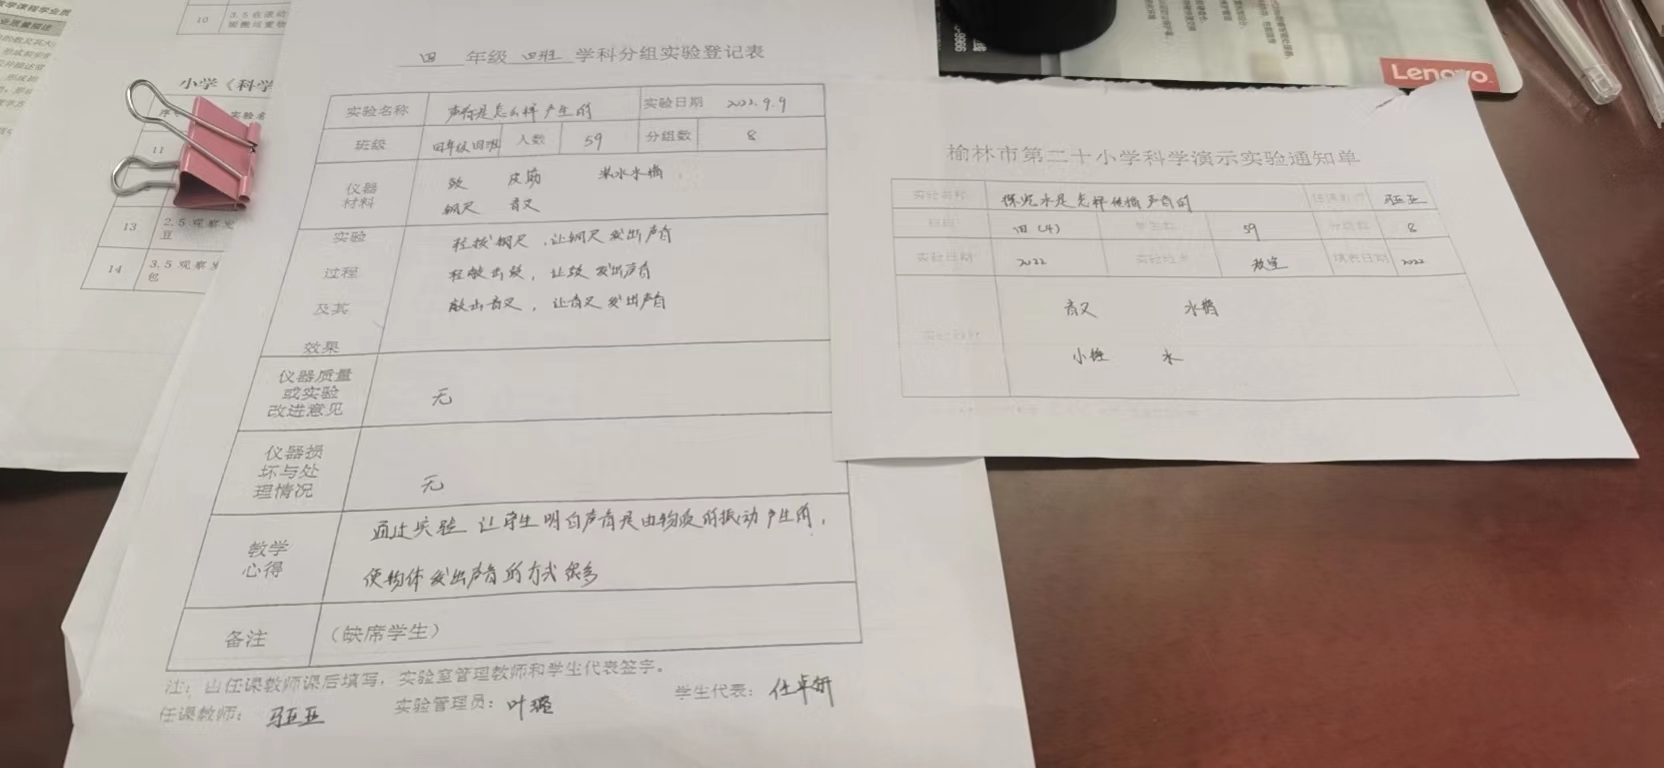 10
3.5 在滚动
小学《科学
实验名
11
13
2.5 观察发
豆
14
3.5 观察发
包
四 年级 四班 学科分组实验登记表
实验名称 声音是怎么样产生的 实验日期 2022.9.9
班级 四年级四班 人数 59 分组数 8
仪器材料 鼓 皮筋 装水水槽
钢尺 音叉
实验过程及其效果
轻拨钢尺,让钢尺发出声音
轻敲击鼓,让鼓发出声音
敲击音叉,让音叉发出声音
仪器质量或实验改进意见 无
仪器损坏与处理情况 无
教学心得 通过实验 让学生明白声音是由物体的振动产生的,
使物体发出声音的方式很多
备注 (缺席学生)
注:由任课教师课后填写,实验室管理教师和学生代表签字。
任课教师: 马亚亚 实验管理员:叶璐 学生代表:任卓妍
Lenovo
榆林市第二十小学科学演示实验通知单
实验名称 探究水是怎样传播声音的 任课教师 马亚亚
班级 四(4) 学生数 59 分组数 8
实验日期 2022 实验地点 教室 填表日期 2022
音叉 水槽
小锤 水